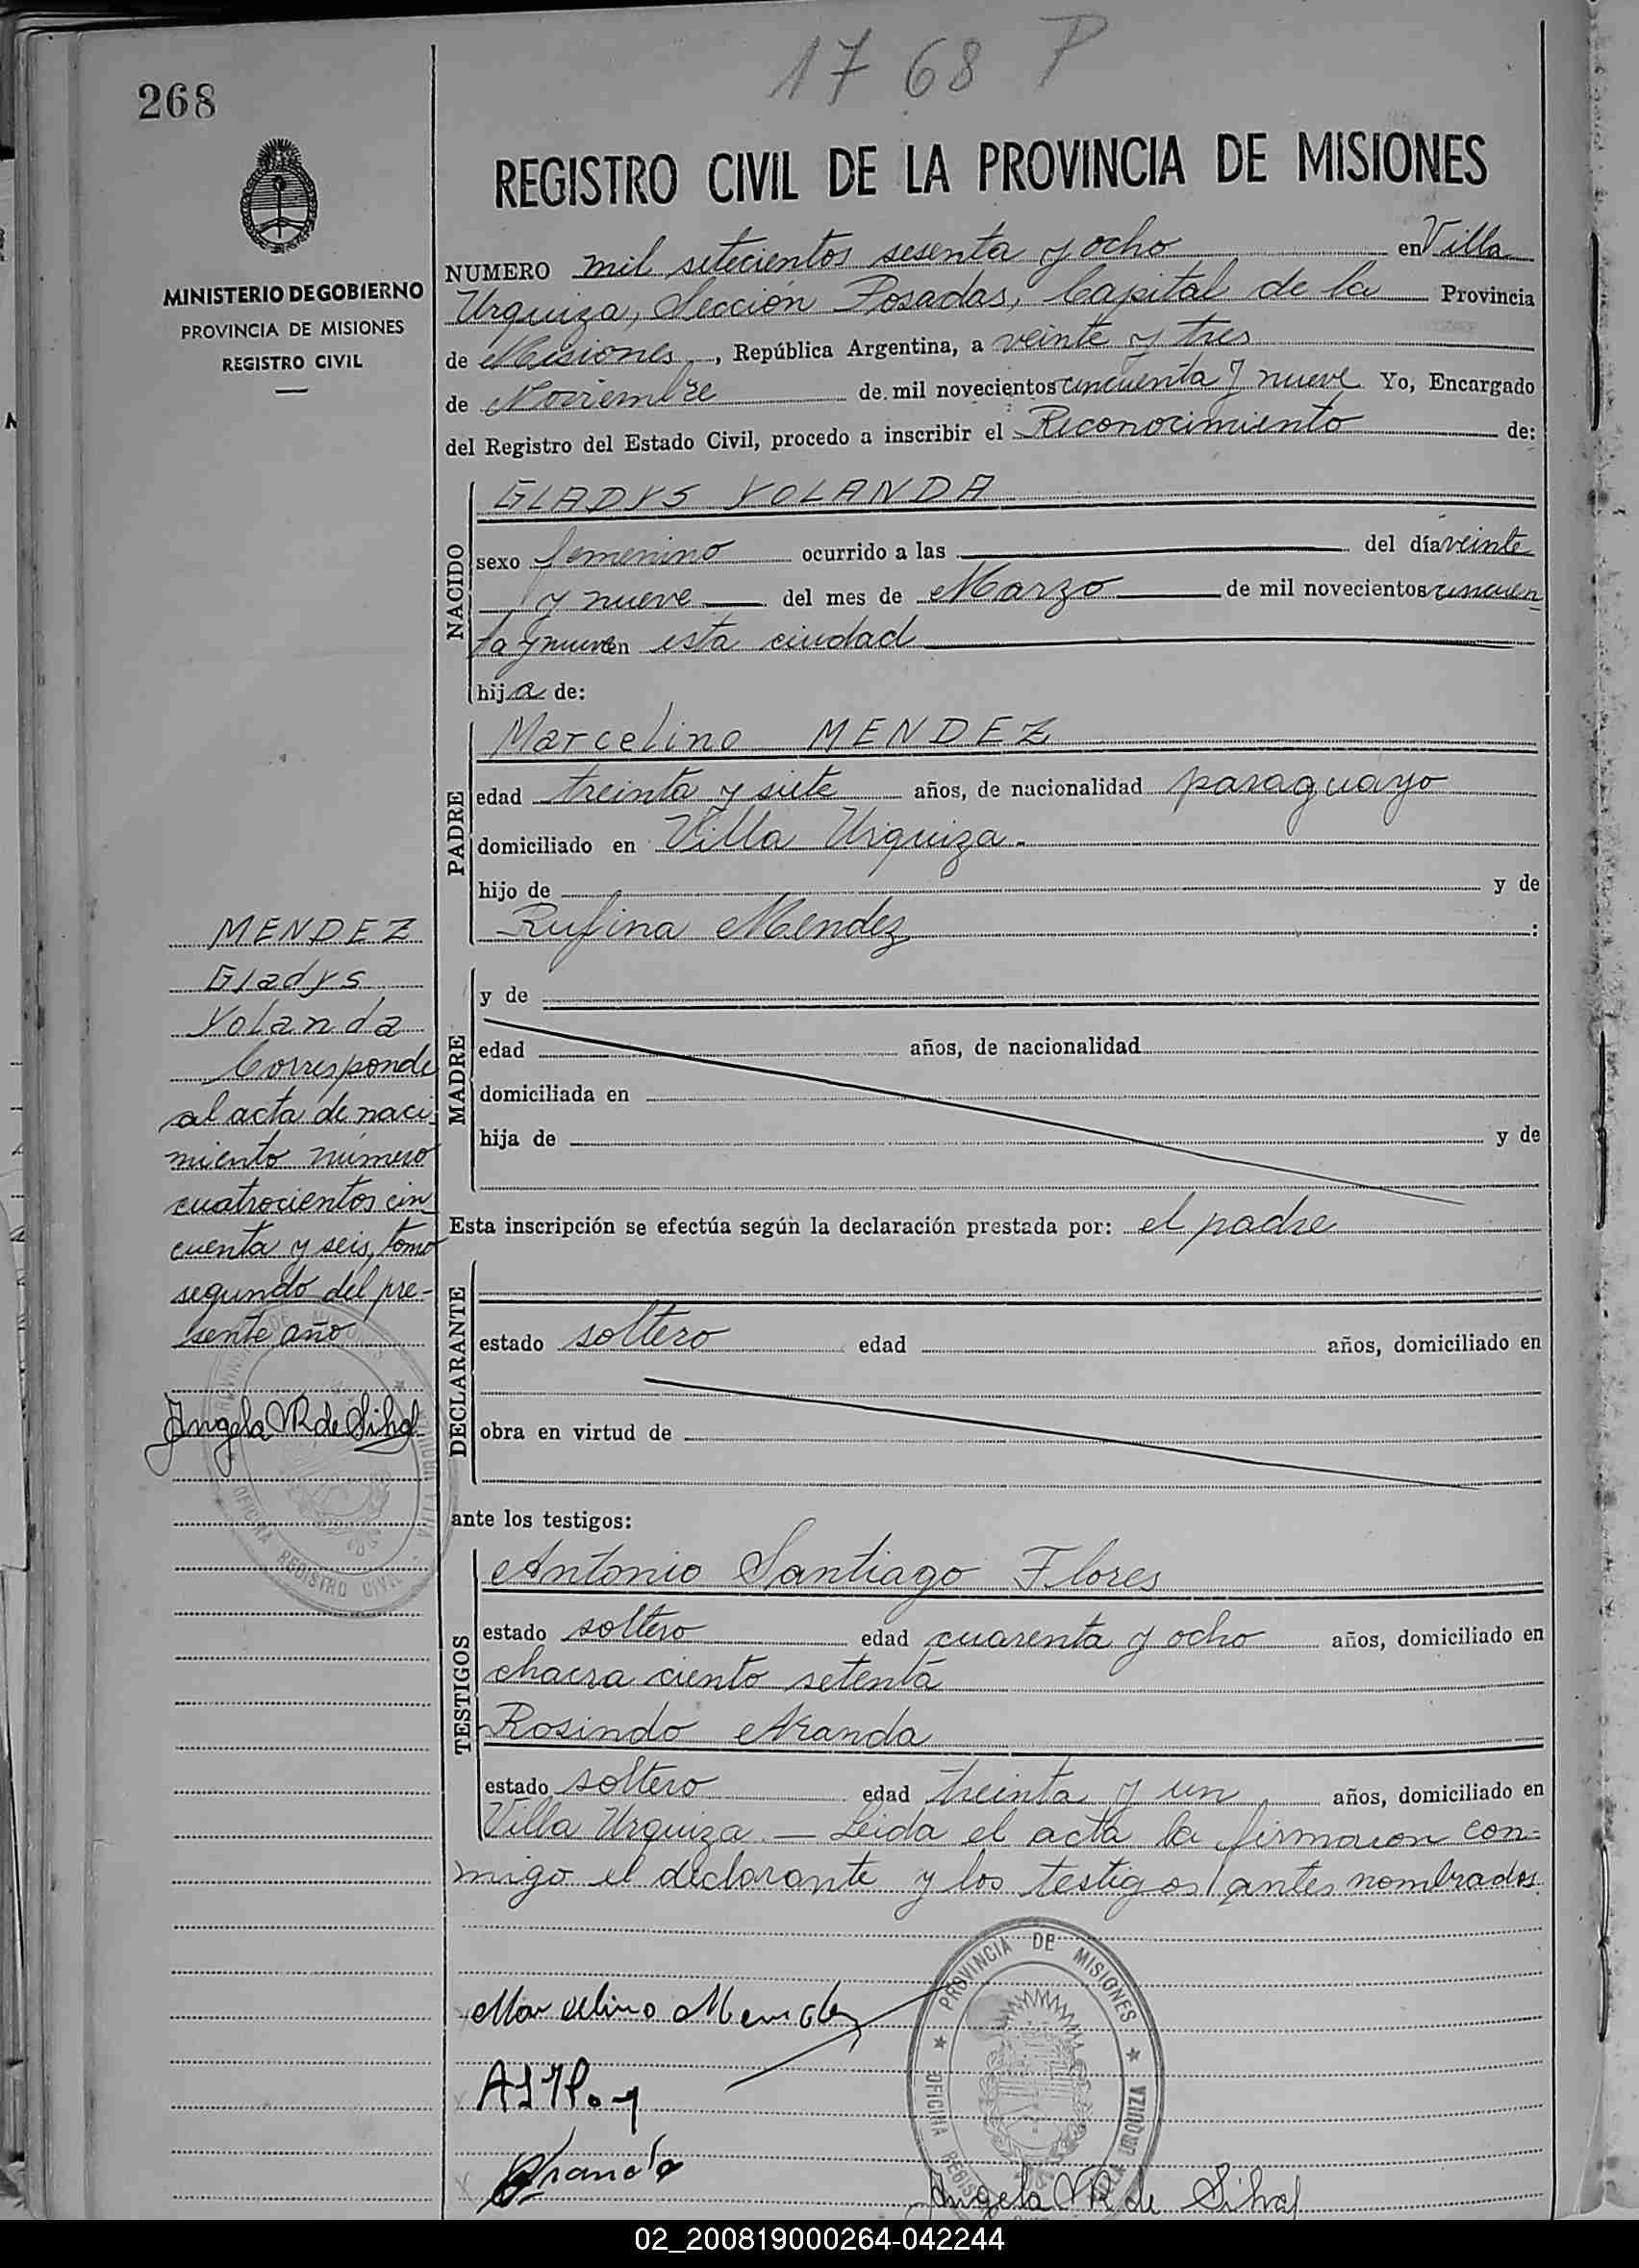 17 68 P
268
REGISTRO CIVIL DE LA PROVINCIA DE MISIONES
MINISTERIO DE GOBIERNO
PROVINCIA DE MISIONES
REGISTRO CIVIL
NUMERO mil setecientos sesenta y ocho en Villa
Urquiza, Sección Posadas, Capital de la Provincia
de Misiones, República Argentina, a veinte y tres
de Noviembre de mil novecientos cincuenta y nueve Yo, Encargado
del Registro del Estado Civil, procedo a inscribir el Reconocimiento de:
NACIDO
GLADYS YOLANDA
sexo femenino ocurrido a las del día veinte
y nueve del mes de Marzo de mil novecientos cincuen
ta y nueve en esta ciudad
hija de:
PADRE
Marcelino MENDEZ
edad treinta y siete años, de nacionalidad paraguayo
domiciliado en Villa Urquiza.
hijo de y de
Rufina Mendez :
MADRE
y de
edad años, de nacionalidad
domiciliada en
hija de y de
Esta inscripción se efectúa según la declaración prestada por: el padre
DECLARANTE
estado soltero edad años, domiciliado en
obra en virtud de
ante los testigos:
TESTIGOS
Antonio Santiago Flores
estado soltero edad cuarenta y ocho años, domiciliado en
chacra ciento setenta
Rosindo Aranda
estado soltero edad treinta y un años, domiciliado en
Villa Urquiza. — Leida el acta la firmaron con=
migo el declarante y los testigos antes nombrados
MENDEZ
Gladys
Yolanda
Corresponde
al acta de naci
miento número
cuatrocientos cin
cuenta y seis, tomo
segundo del pre-
sente año
Angela VR de Silva
OFICINA REGISTRO CIVIL
Marcelino Mendez
PROVINCIA DE MISIONES
OFICINA REGIS
VILLA URQUIZA
Angela VR de Silva
02_200819000264-042244